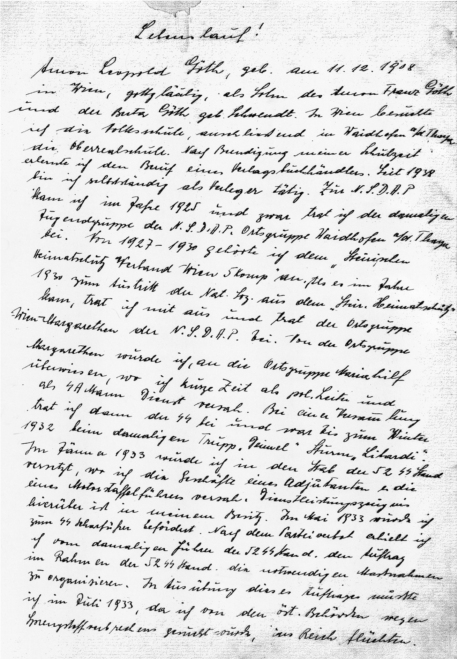 Lebenslauf!
Amon Leopold Göth, geb. am 11.12.1908
in Wien, gottgläubig, als Sohn des Amon Franz Göth
und der Berta Göth geb. Schwendt. In Wien besuchte
ich die Volksschule, anschliessend in Waidhofen a/d Thaya
die Oberrealschule. Nach Bendigung meiner Schulzeit
erlernte ich den Beruf eines Verlagsbuchhändlers. Seit 1938
bin ich selbstständig als Verleger tätig. Zur N.S.D.A.P
kam ich im Jahre 1925 und zwar trat ich der damaligen
Jugendgruppe der N.S.D.A.P. Ortsgruppe Waidhofen a/d. Thaya
bei. Von 1927-1930 gehörte ich dem "Steirischen
Heimatschutz Verband Wien" an. Als es im Jahre
1930 zum Austritt der Nat. Soz. aus dem "Steir. Heimatschutz"
kam, trat ich mit aus und trat der Ortsgruppe
Wien-Margarethen der N.S.D.A.P. bei. Von der Ortsgruppe
Margarethen wurde ich, an die Ortsgruppe Mariahilf
überwiesen, wo ich kurze Zeit als pol. Leiter und
als SA Mann Dienst versah. Bei einer Versammlung
trat ich dann der SS bei und war bis zum Winter
1932 beim damaligen Trupp "Deimel" Sturm "Libardi"
Im Jänner 1933 wurde ich in den Stab der 52 SS Stand
versetzt, wo ich die Geschäfte eines Adjutanten u. die
eines Motorstaffelführers versah. Dienstleistungszeugnis
hierüber ist in meinem Besitz. Im Mai 1933 wurde ich
zum SS Scharführer befördert. Nach dem Parteiverbot erhielt ich
vom damaligen Führer der 52 SS Stand. den Auftrag
im Rahmen der 52 SS Stand. die notwendigen Massnahmen
zu organisieren. In Ausübung dieses Auftrages musste
ich im Juli 1933, da ich von den öst. Behörden wegen
Sprengstoffverbrechens gesucht wurde, ins Reich flüchten.